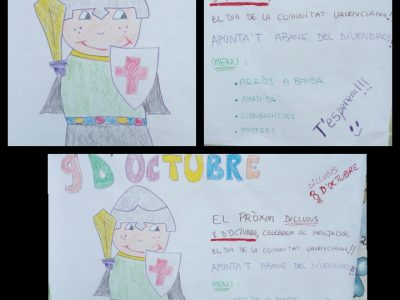 EL DIA DE LA COMUNITAT VALENCIANA!!
APUNTA'T ABANS DEL DIVENDRES
MENU :
• ARRÒS A BANDA
• AMANIDA
• LLONGANISSES
• POSTRES
T'esperem!!!
9 D'OCTUBRE
DILLUNS
8 D'OCTUBRE
EL PRÒXIM DILLUNS
8 D'OCTUBRE, CELEBREM AL MENJADOR
EL DIA DE LA COMUNITAT VALENCIANA!!
APUNTA'T ABANS DEL DIVENDRES!!
MENU :